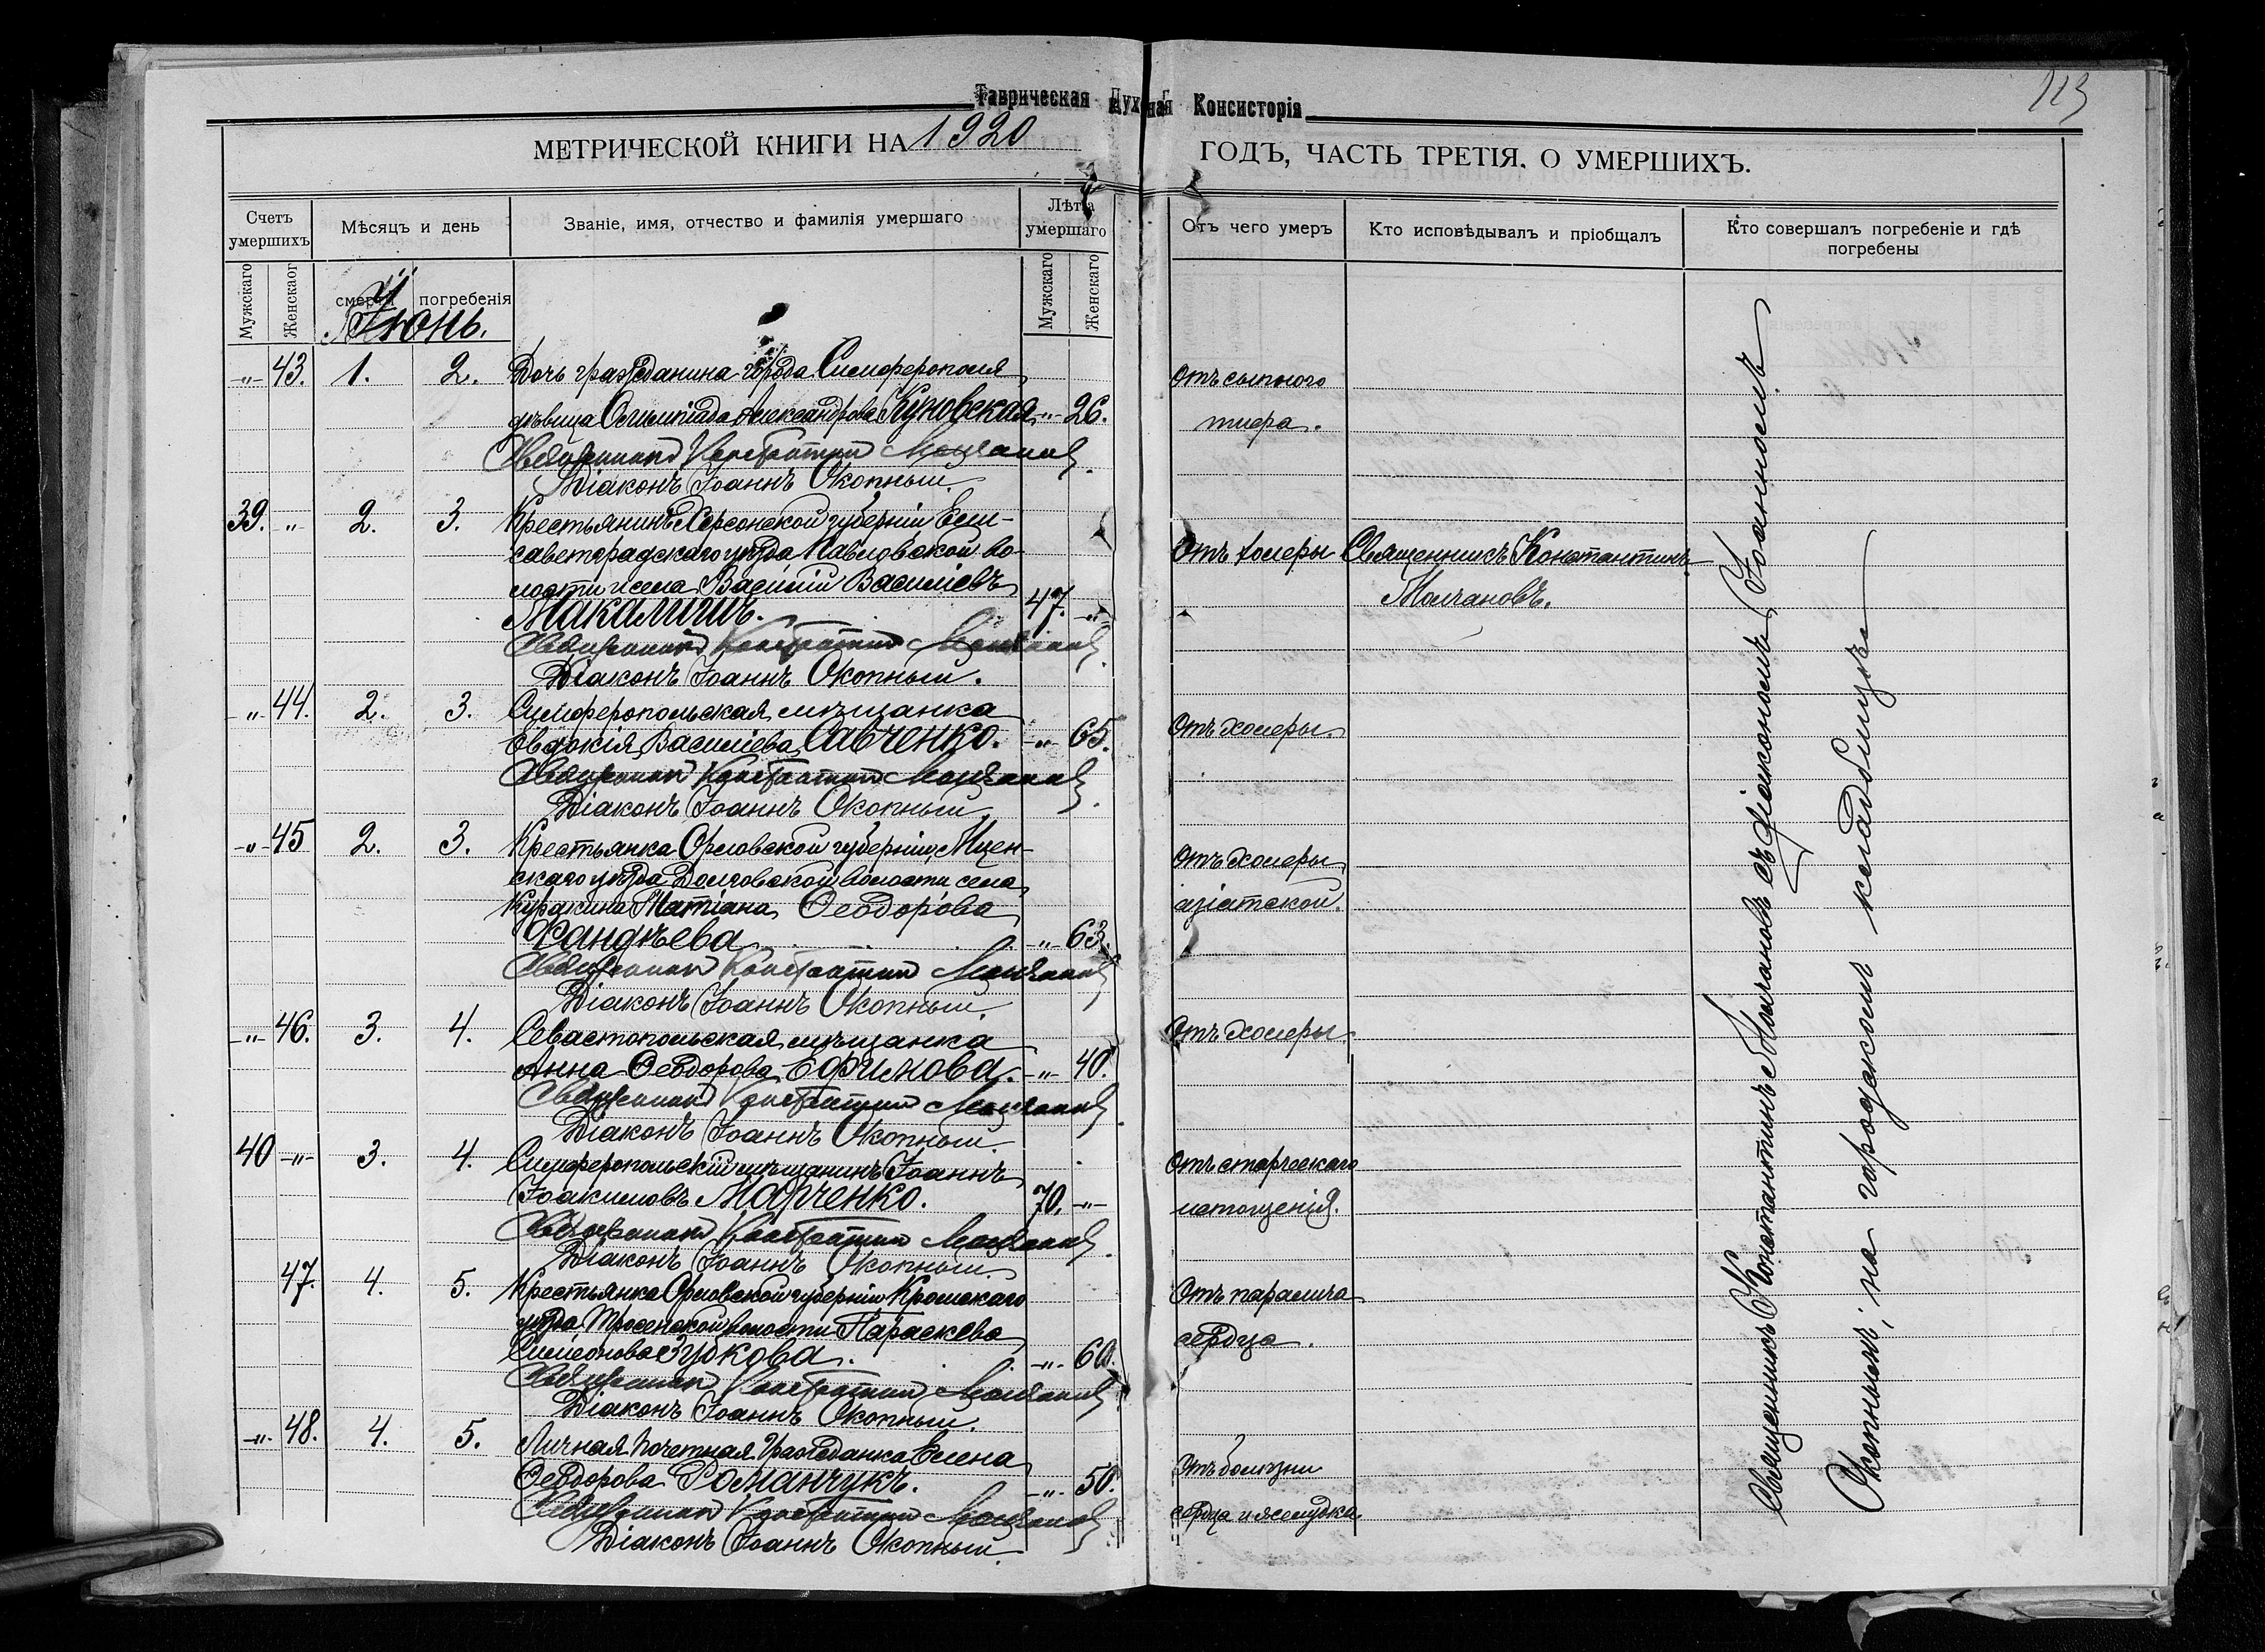 Таврическая Духовная Консисторія
113
МЕТРИЧЕСКОЙ КНИГИ НА 1920 ГОДЪ, ЧАСТЬ ТРЕТІЯ, О УМЕРШИХЪ.
Счетъ умершихъ
Мѣсяцъ и день
Званіе, имя, отчество и фамилія умершаго
Лѣта умершаго
Отъ чего умеръ
Кто исповѣдывалъ и пріобщалъ
Кто совершалъ погребеніе и гдѣ погребены
Мужскаго
Женскаго
смерти
погребенія
Мужскаго
Женскаго
Іюнь.
-"- 43. 1. 2. Дочь гражданина города Симферополя Отъ сыпного
дѣвица Олимпіада Александрова Куновская -"- 26. тифа.
Священникъ Константинъ Молчановъ
Діаконъ Іоаннъ Окопный.
39. " 2. 3. Крестьянинъ Херсонской губерніи Ели-
саветградскаго уѣзда Павловской во- Отъ холеры Священникъ Константинъ
лости и села Василій Васильевъ Молчановъ.
Макалишъ. 47. -"-
Священникъ Константинъ Молчановъ
Діаконъ Іоаннъ Окопный.
-"- 44. 2. 3. Симферопольская мѣщанка Отъ холеры
Евдокія Василіева Савченко. -"- 65.
Священникъ Константинъ Молчановъ
Діаконъ Іоаннъ Окопный.
-"- 45 2. 3. Крестьянка Орловской губерніи, Мцен- Отъ холеры
скаго уѣзда Долговской волости села азіатской.
Куракина Татіана Ѳеодорова
Фандѣева -"- 63.
Священникъ Константинъ Молчановъ
Діаконъ Іоаннъ Окопный.
-"- 46. 3. 4. Севастопольская мѣщанка Отъ холеры
Анна Ѳеодорова Ефимова. -"- 40.
Священникъ Константинъ Молчановъ
Діаконъ Іоаннъ Окопный.
40 -"- 3. 4. Симферопольскій мѣщанинъ Іоаннъ Отъ старческаго
Іоакимовъ Марченко. 70. -"- истощенія.
Священникъ Константинъ Молчановъ
Діаконъ Іоаннъ Окопный.
47. 4. 5. Крестьянка Орловской губерніи Кромскаго Отъ паралича
уѣзда Тросенской волости Параскева сердца.
Симеонова Зубкова. -"- 60.
Священникъ Константинъ Молчановъ
Діаконъ Іоаннъ Окопный.
-"- 48. 4. 5. Личная Почетная Гражданка Елена Отъ болѣзни
Ѳеодорова Романчукъ. -"- 50. сердца и желудка.
Священникъ Константинъ Молчановъ
Діаконъ Іоаннъ Окопный.
Священникъ Константинъ Молчановъ съ діакономъ Іоанномъ
Окопнымъ, на городскомъ кладбищѣ